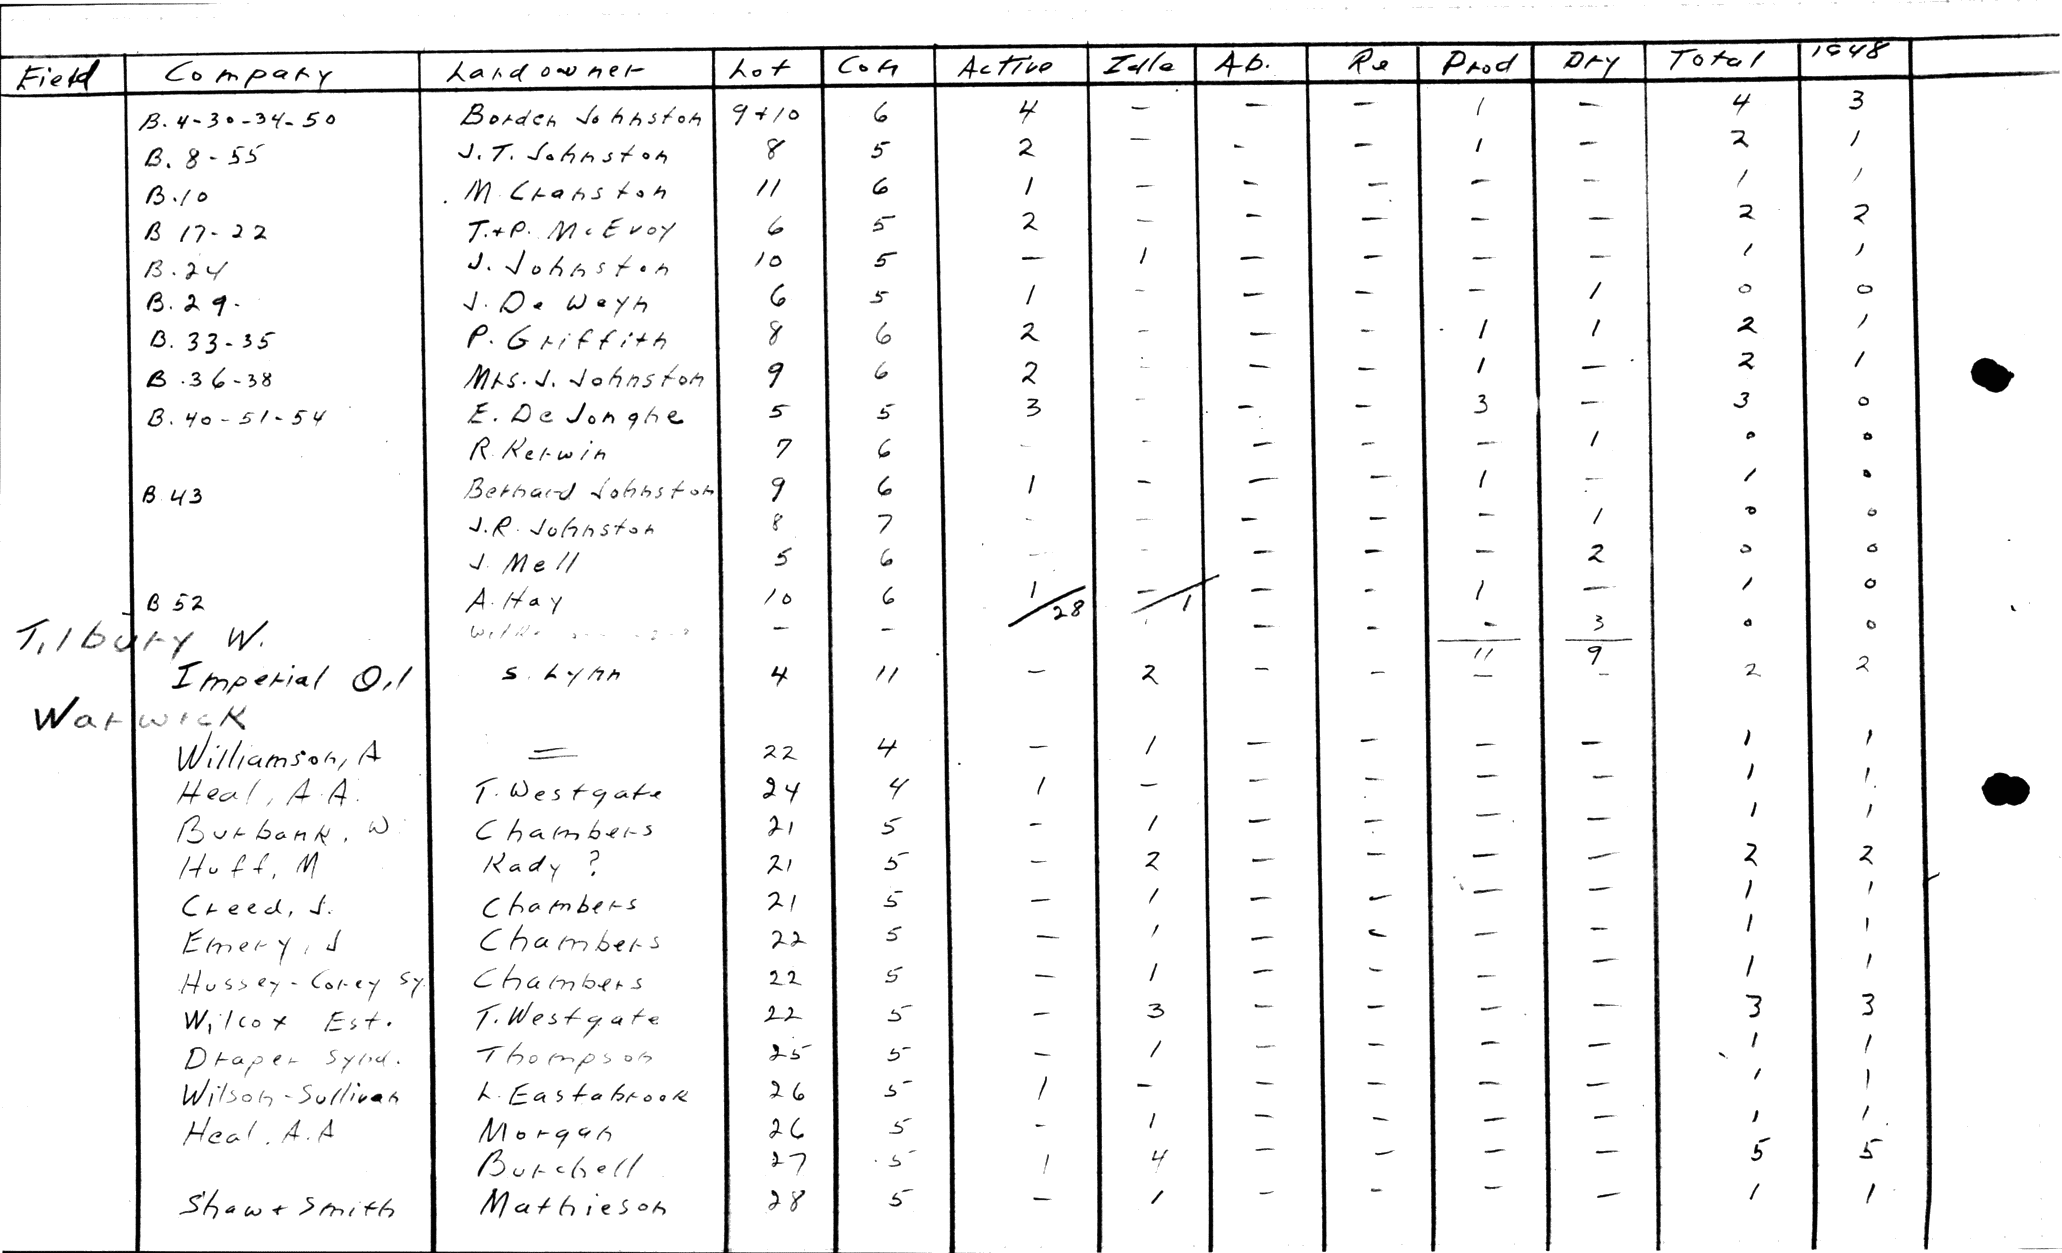 Field Company Landowner Lot Con Active Idle Ab. Re Prod Dry Total 1948
B. 4-30-34-50 Borden Johnston 9+10 6 4 — — — 1 — 4 3
B. 8-55 J.T. Johnston 8 5 2 — - — 1 — 2 1
B.10 M. Cranston 11 6 1 — — — — — 1 1
B 17-22 T.+P. McEvoy 6 5 2 — — — — — 2 2
B.24 J. Johnston 10 5 — 1 — — — — 1 1
B.29. J. De Weyn 6 5 1 - — — — 1 0 0
B. 33-35 P. Griffith 8 6 2 - — - 1 1 2 1
B.36-38 Mrs. J. Johnston 9 6 2 - — — 1 — 2 1
B. 40-51-54 E. DeJonghe 5 5 3 - — — 3 — 3 0
R. Kerwin 7 6 - - — - — 1 0 0
B 43 Bernard Johnston 9 6 1 - — — 1 — 1 0
J.R. Johnston 8 7 - - — — — 1 0 0
J. Mell 5 6 - - — — — 2 0 0
B 52 A. Hay 10 6 1/28 —/1 — — 1 — 1 0
Tilbury W. — — — - - 3 0 0
11 9
Imperial Oil S. Lynn 4 11 — 2 — - — - 2 2
Warwick
Williamson, A = 22 4 — 1 — — — — 1 1
Heal, A.A. T. Westgate 24 4 1 — — — — — 1 1
Burbank, W. Chambers 21 5 - 1 — — — — 1 1
Huff, M Kady ? 21 5 — 2 — — — — 2 2
Creed, J. Chambers 21 5 — 1 — — — — 1 1
Emery, J Chambers 22 5 — 1 — — — — 1 1
Hussey-Corey Sy. Chambers 22 5 — 1 — — — — 1 1
Wilcox Est. T. Westgate 22 5 — 3 — — — — 3 3
Draper Synd. Thompson 25 5 — 1 — — — — 1 1
Wilson-Sullivan L. Eastabrook 26 5 1 — — — — — 1 1
Heal, A.A Morgan 26 5 - 1 — — — — 1 1
Burchell 27 5 1 4 — — — — 5 5
Shaw + Smith Mathieson 28 5 — 1 — — — — 1 1